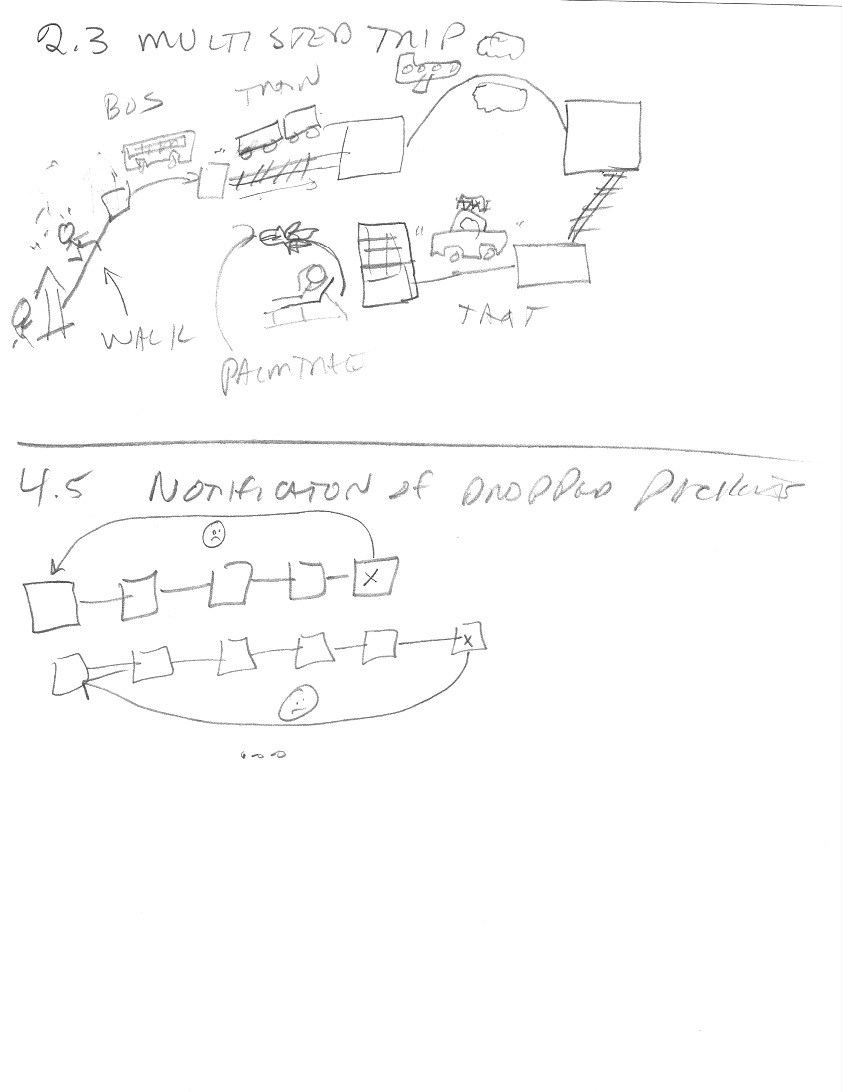 2.3 MULTI STEP TRIP
BUS
TRAIN
WALK
TAXI
PALM TREE
4.5 NOTIFICATON of DROPPED PACKETS
X
X